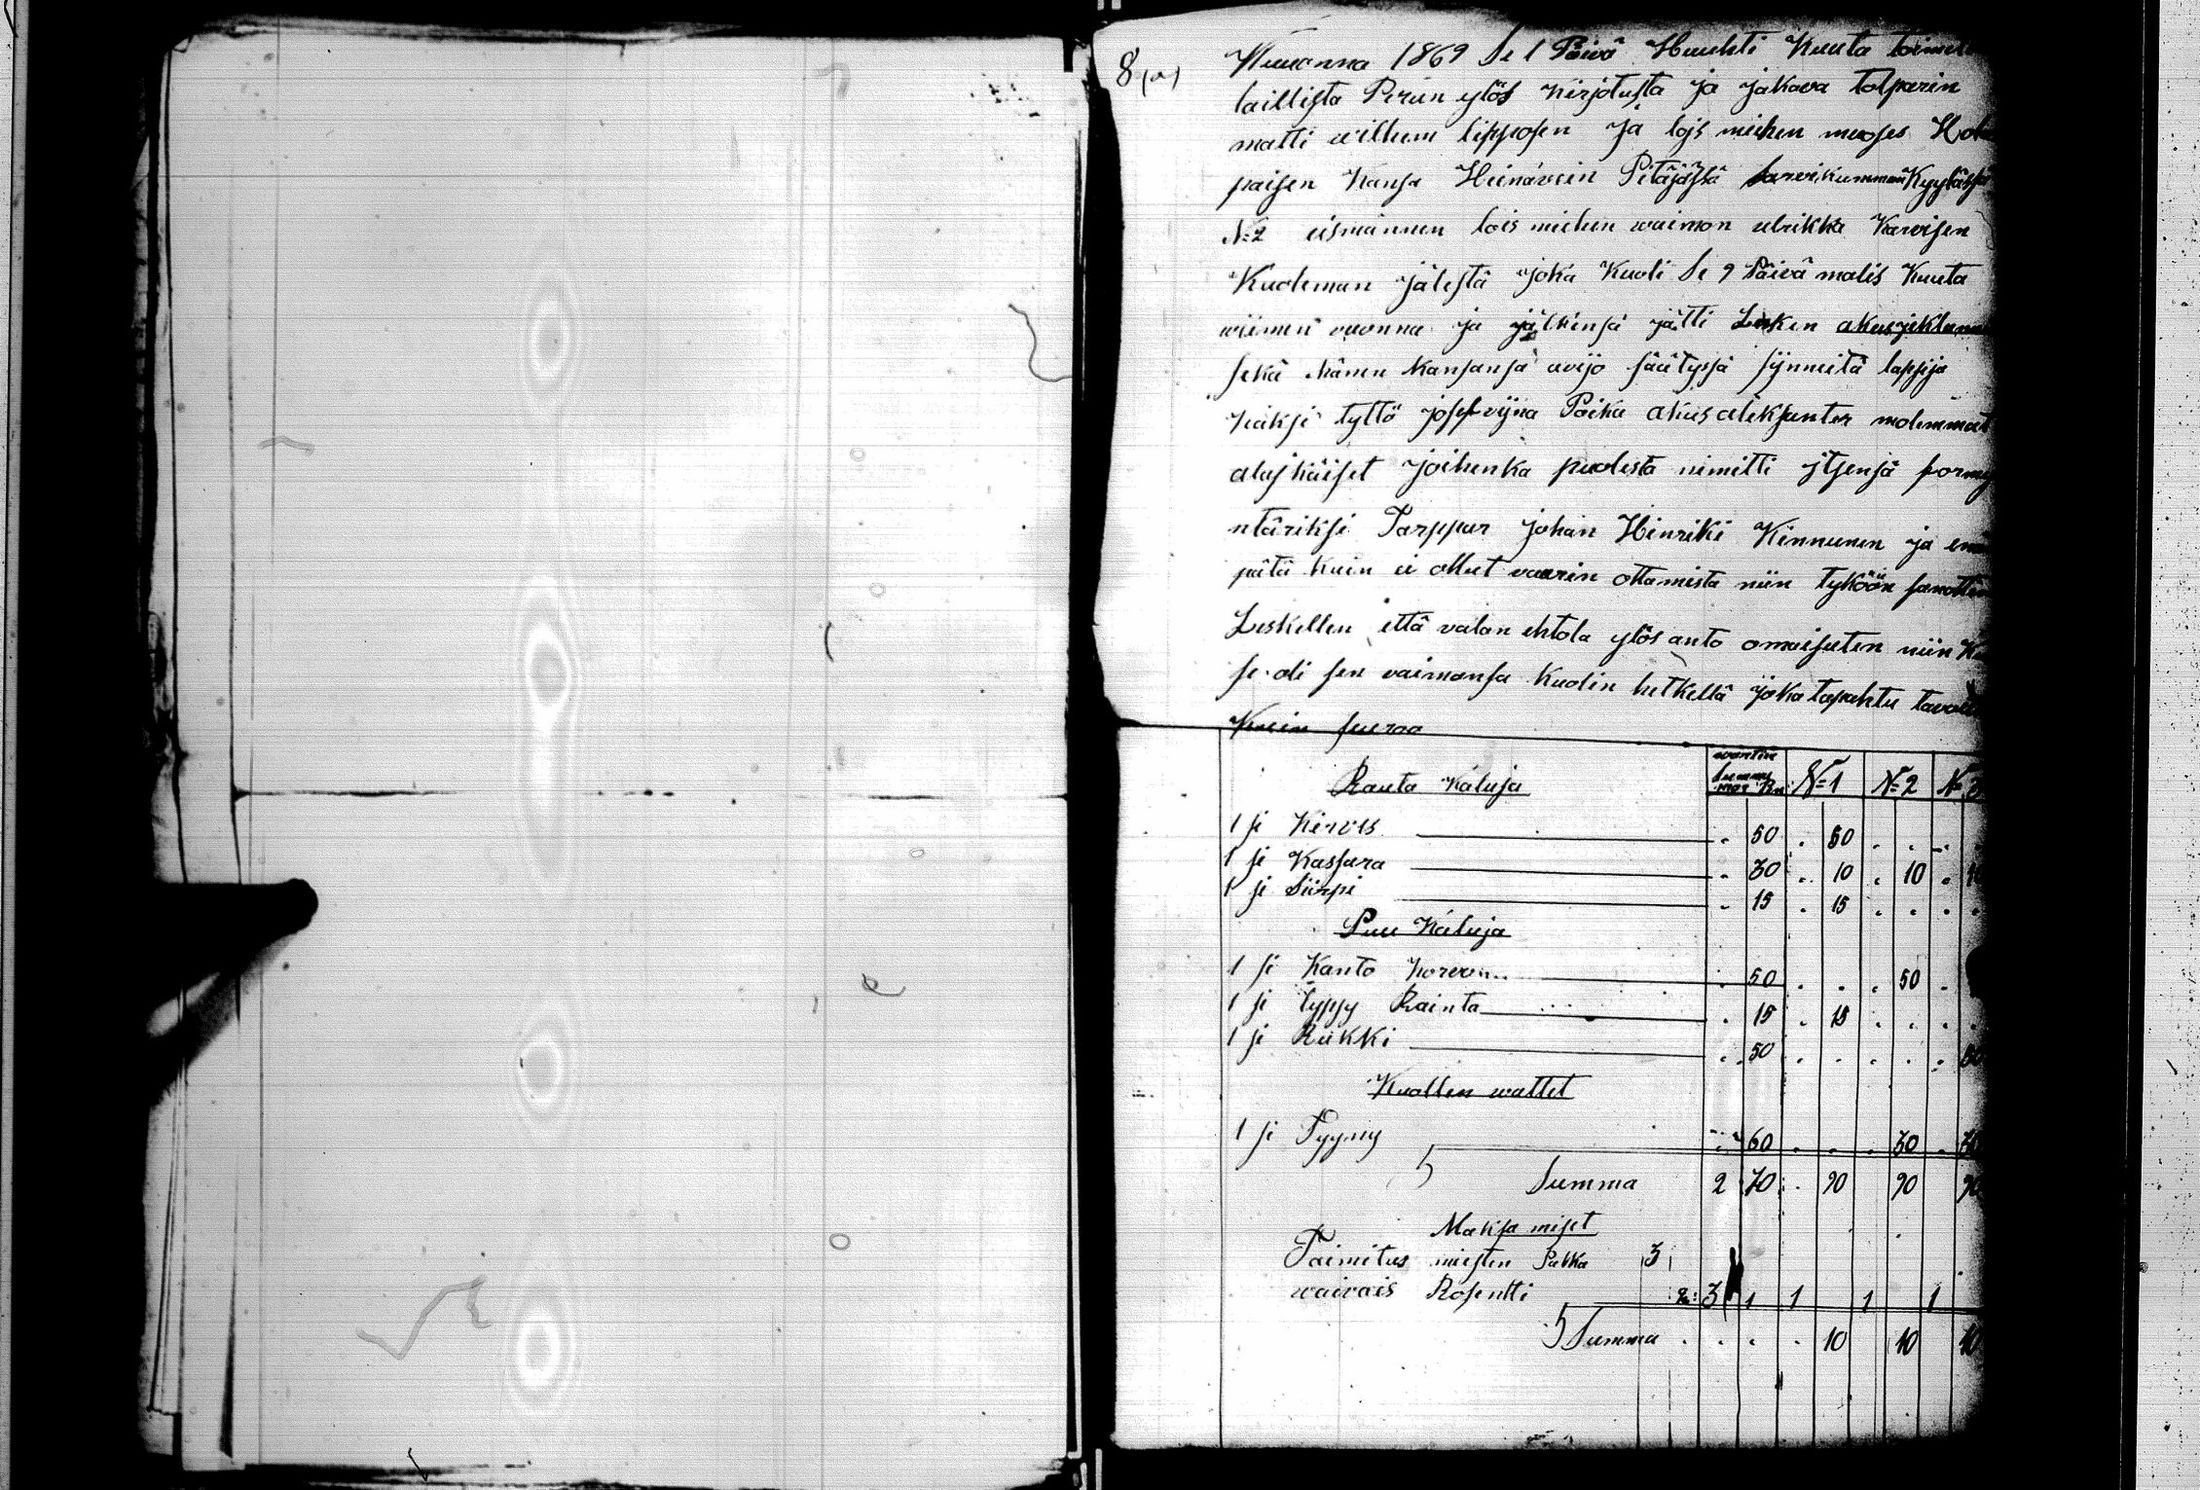 8 (a)
Wuuonna 1869 Se 1 Päivä Huuhti Kuuta toimet
laillista Perun ylös kirjotusta ja jakava tolparin
matti villum lipposen ja lojs miehen moses Ho
paisen kansa Heinävein Pitäjästä Sarvikumman Kyylästä
N:2 eismännen lois miehen vaimon ulrikka Karvisen
Kuoleman jälestä joka Kuoli Se 9 Päivä malis Kuuta
viimen vuonna ja jälkensä jätti Lesken
sekä hänen kansansa avijo säätyssä synneitä lapsija
kaksi tyttö josefviina Poika akus aleksanter molemmat
alaj käiset joihenka puolesta nimitti jtsensä formy
ntäriksi Torppar johan Hinriki Kinnunen ja en
pätä kuin ei ollut vaarin ottamista niin tyköön sanottin
Leskellen että valan ehtola ylös anto omaisuten niin K
se oli sen vaimonsa kuolin hetkellä joka tapahtu tavalla
Kuin seuraa
Rauta Kaluja Summa N:1 N:2 N:3
1 si Kirves . 50 . 50 . . .
1 si Kassara . 30 . 10 . 10 . 10
1 si Siirpi . 15 . 15 . . . .
Puu Kaluja
1 si Kanto Korvo . 50 . . . 50 .
1 si typpy Rainta . 15 . 15 . . . .
1 si Rukki . 50 . . . . . 50
Kuollen wattet
1 si Tyyny . 60 . . . 30 . 30
Summa 2 70 . 90 90 90
Maksa miset
Toimitus miesten Palkka 3
waivais Rosentti 3 1 1 1 1
Summa . . . . 10 10 10